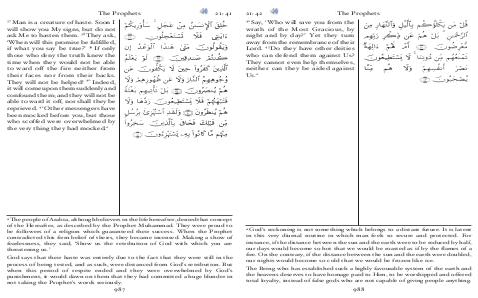 The Prophets
21 : 41
³⁷ Man is a creature of haste. Soon I
will show you My signs, but do not
ask Me to hasten them. ³⁸ They ask,
'When will this promise be fulfilled,
if what you say be true?' ³⁹ If only
those who deny the truth knew the
time when they would not be able
to ward off the fire neither from
their faces nor from their backs.
They will not be helped! ⁴⁰ Indeed,
it will come upon them suddenly and
confound them; and they will not be
able to ward it off, nor shall they be
reprieved. ⁴¹ Other messengers have
been mocked before you, but those
who scoffed were overwhelmed by
the very thing they had mocked.ᵃ
خُلِقَ الْإِنسَانُ مِنْ عَجَلٍ سَأُورِيكُمْ
آيَاتِي فَلَا تَسْتَعْجِلُونِ
وَيَقُولُونَ مَتَىٰ هَٰذَا الْوَعْدُ إِن
كُنتُمْ صَادِقِينَ لَوْ يَعْلَمُ
الَّذِينَ كَفَرُوا حِينَ لَا يَكُفُّونَ عَن
وُجُوهِهِمُ النَّارَ وَلَا عَن ظُهُورِهِمْ وَلَا
هُمْ يُنصَرُونَ بَلْ تَأْتِيهِم بَغْتَةً
فَتَبْهَتُهُمْ فَلَا يَسْتَطِيعُونَ رَدَّهَا وَلَا
هُمْ يُنظَرُونَ وَلَقَدِ اسْتُهْزِئَ بِرُسُلٍ
مِّن قَبْلِكَ فَحَاقَ بِالَّذِينَ سَخِرُوا
مِنْهُم مَّا كَانُوا بِهِ يَسْتَهْزِئُونَ
ᵃ The people of Arabia, although believers in the life hereafter, denied that concept
of the Hereafter, as described by the Prophet Muhammad. They were proud to
be followers of a religion which guaranteed their success. When the Prophet
contradicted this firm belief of theirs, they became incensed. Making a show of
fearlessness, they said, 'Show us the retribution of God with which you are
threatening us.'
God says that their haste was entirely due to the fact that they were still in the
process of being tested, and as such, were distanced from God's retribution. But
when this period of respite ended and they were overwhelmed by God's
punishment, it would dawn on them that they had committed a huge blunder in
not taking the Prophet's words seriously.
987
21 : 42
The Prophets
⁴² Say, 'Who will save you from the
wrath of the Most Gracious, by
night and by day?' Yet they turn
away from the remembrance of their
Lord. ⁴³ Do they have other deities
who can defend them against Us?
They cannot even help themselves,
neither can they be aided against
Us.ᵃ
قُلْ مَن يَكْلَؤُكُم بِاللَّيْلِ وَالنَّهَارِ مِنَ
الرَّحْمَٰنِ بَلْ هُمْ عَن ذِكْرِ رَبِّهِم
مُّعْرِضُونَ أَمْ لَهُمْ آلِهَةٌ
تَمْنَعُهُم مِّن دُونِنَا لَا يَسْتَطِيعُونَ
نَصْرَ أَنفُسِهِمْ وَلَا هُم مِّنَّا
يُصْحَبُونَ
ᵃ God's reckoning is not something which belongs to a distant future. It is latent
in this very diurnal routine in which man feels so secure and protected. For
instance, if the distance between the sun and the earth were to be reduced by half,
our days would become so hot that we would be roasted as if by the flames of a
fire. On the contrary, if the distance between the sun and the earth were doubled,
our nights would become so cold that we would be frozen like ice.
The Being who has established such a highly favourable system of the earth and
the heavens deserves to have homage paid to Him, to be worshipped and offered
total loyalty, instead of false gods who are not capable of giving people anything.
988